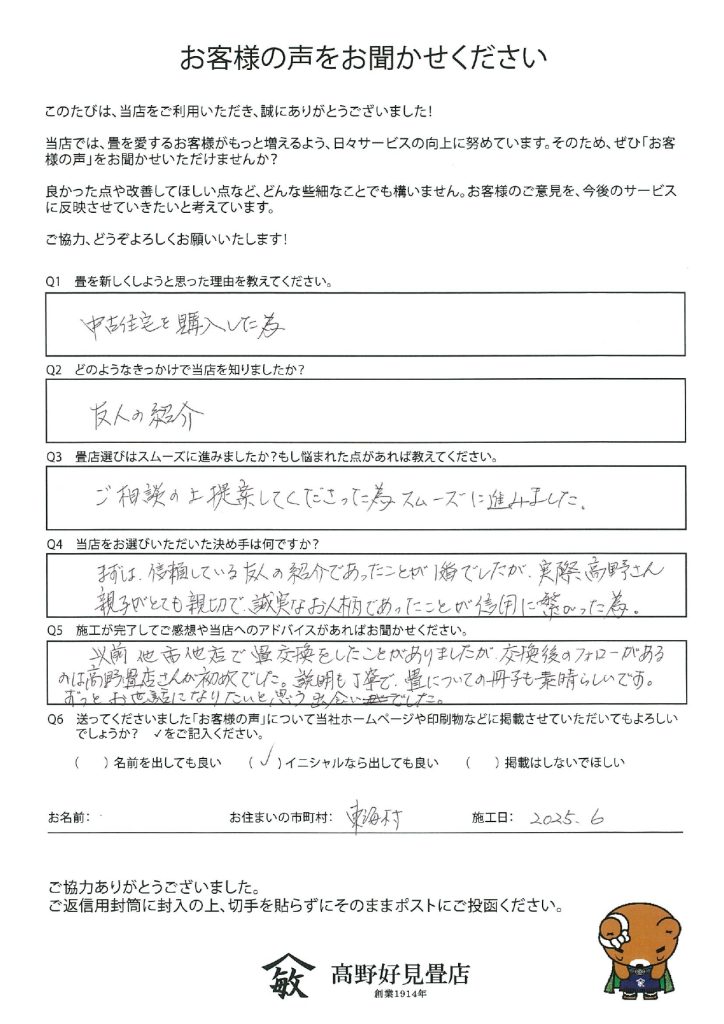 お客様の声をお聞かせください
このたびは、当店をご利用いただき、誠にありがとうございました！
当店では、畳を愛するお客様がもっと増えるよう、日々サービスの向上に努めています。そのため、ぜひ「お客
様の声」をお聞かせいただけませんか？
良かった点や改善してほしい点など、どんな些細なことでも構いません。お客様のご意見を、今後のサービス
に反映させていきたいと考えています。
ご協力、どうぞよろしくお願いいたします！
Q1 畳を新しくしようと思った理由を教えてください。
中古住宅を購入した為
Q2 どのようなきっかけで当店を知りましたか？
友人の紹介
Q3 畳店選びはスムーズに進みましたか？もし悩まれた点があれば教えてください。
ご相談の上提案してくださった為スムーズに進みました。
Q4 当店をお選びいただいた決め手は何ですか？
まずは、信頼している友人の紹介であったことが1番でしたが、実際、高野さん
親子がとても親切で、誠実なお人柄であったことが信用に繋がった為。
Q5 施工が完了してご感想や当店へのアドバイスがあればお聞かせください。
以前他市他店で畳交換をしたことがありましたが、交換後のフォローがある
のは高野畳店さんが初めてでした。説明も丁寧で、畳についての冊子も素晴らしいです。
ずっとお世話になりたいと思う出会いでした。
Q6 送ってくださいました「お客様の声」について当社ホームページや印刷物などに掲載させていただいてもよろしい
でしょうか？ ✓をご記入ください。
（ ）名前を出しても良い （✓）イニシャルなら出しても良い （ ）掲載はしないでほしい
お名前： お住まいの市町村： 東海村 施工日： 2025.6
ご協力ありがとうございました。
ご返信用封筒に封入の上、切手を貼らずにそのままポストにご投函ください。
敏 髙野好見畳店
創業1914年